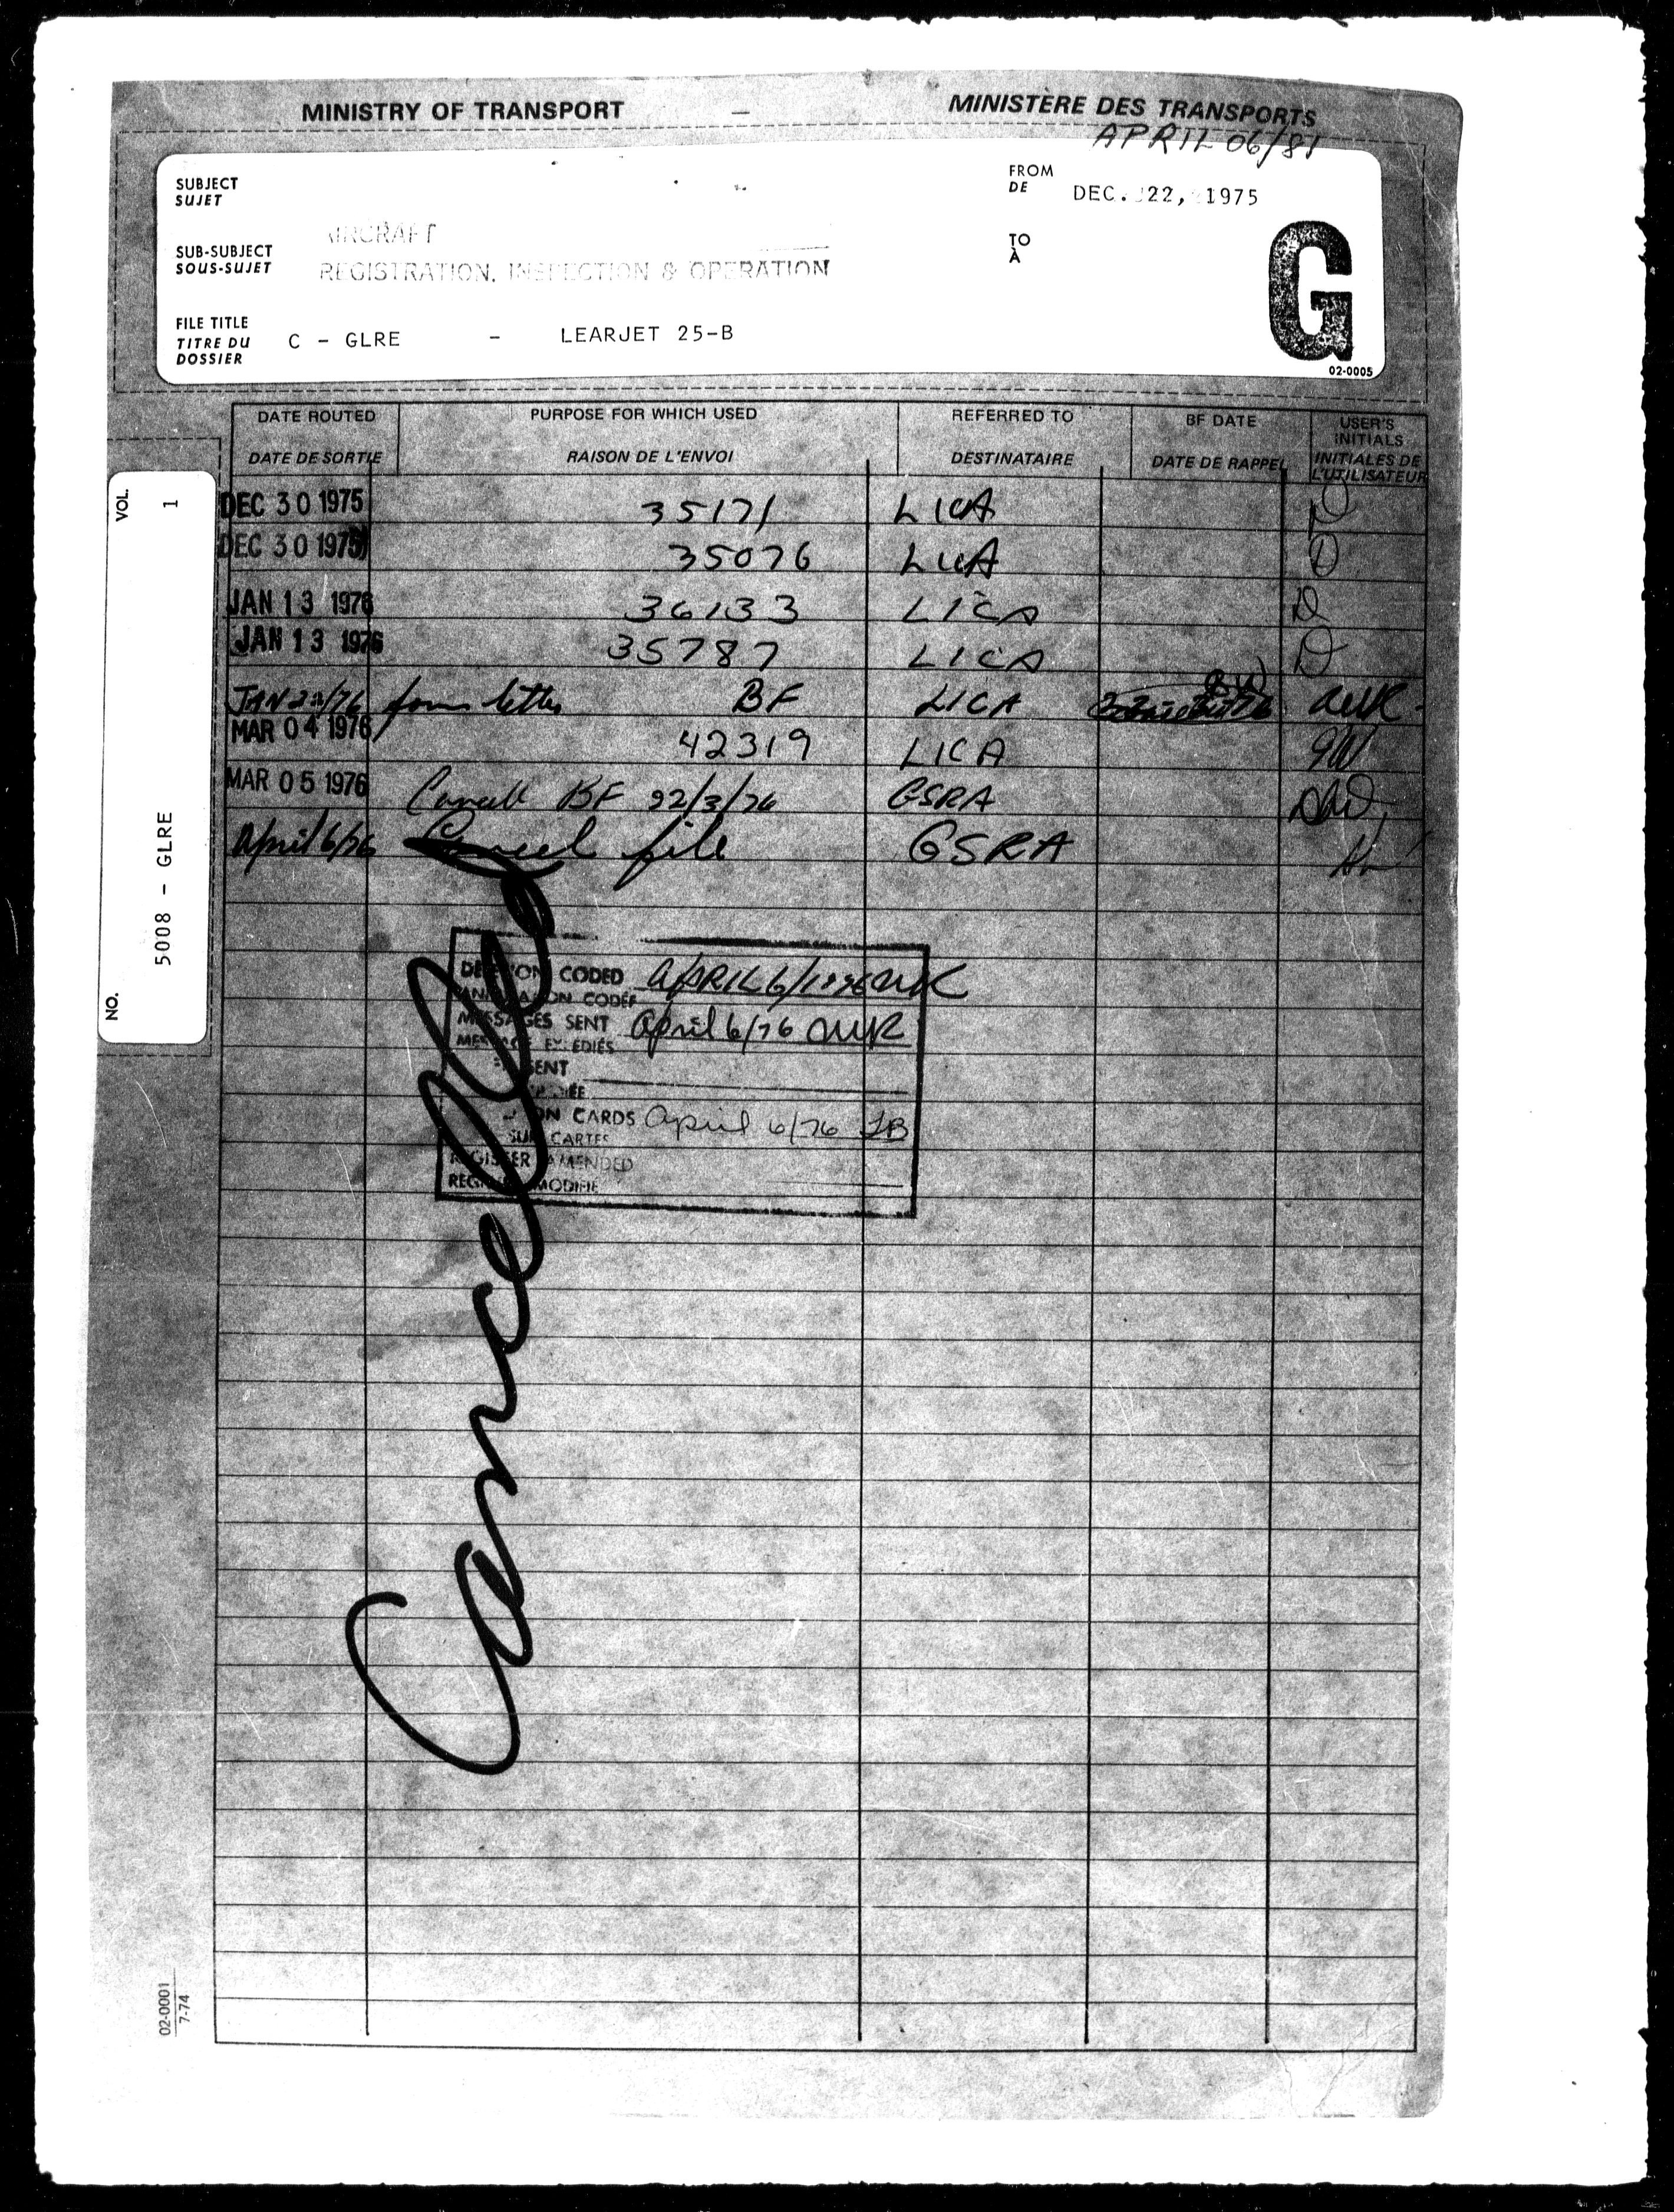 MINISTRY OF TRANSPORT — MINISTÈRE DES TRANSPORTS
APRIL 06/81
SUBJECT
SUJET
FROM
DE
DEC. 22, 1975
AIRCRAFT
SUB-SUBJECT
SOUS-SUJET
REGISTRATION, INSPECTION & OPERATION
TO
À
G
FILE TITLE
TITRE DU
DOSSIER
C - GLRE - LEARJET 25-B
02-0005
DATE ROUTED PURPOSE FOR WHICH USED REFERRED TO BF DATE USER'S INITIALS
DATE DE SORTIE RAISON DE L'ENVOI DESTINATAIRE DATE DE RAPPEL INITIALES DE L'UTILISATEUR
VOL. 1
NO. 5008 - GLRE
DEC 30 1975 35171 LICA D
DEC 30 1975 35076 LICA D
JAN 13 1976 36133 LICA D
JAN 13 1976 35787 LICA D
form letter BF LICA
MAR 04 1976 42319 LICA
MAR 05 1976 Cancell BF 22/3/76 GSRA
April 6/76 Cancel file GSRA
Cancelled
CODED APRIL 6/1976
CODÉE
MESSAGES SENT April 6/76
EXPÉDIÉS
SENT
ON CARDS April 6/76 JB
SUR CARTES
REGISTER AMENDED
MODIFIÉ
02-0001
7-74